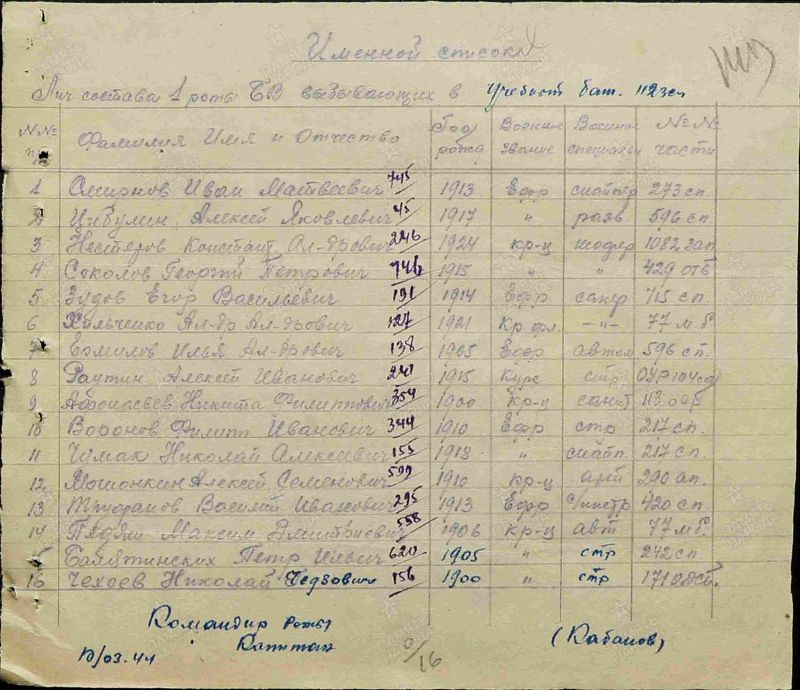 Именной список
Лич состава 1 роты БВ выбывающих в Учебный бат. 112 зсп
№№ пп Фамилия Имя и Отчество Год рожд Военное звание Военная специальн №№ части
1 Смирнов Иван Матвеевич 745 1913 Ефр снайпер 273 сп.
2 Цибулин Алексей Яковлевич 45 1917 " разв. 596 сп.
3 Нестеров Констант Ал-дрович 246 1924 кр-ц 1082 зап
4 Соколов Георгий Петрович 746 1915 " " 429 отб
5 Зудов Егор Васильевич 191 1914 Ефр сапер 715 сп.
6 Хильченко Ал-др Ал-дрович 127 1921 Кр фл. -"- 77 м.б.
7 Ермилов Илья Ал-дрович 138 1905 Ефр автом 596 сп.
8 Раутин Алексей Иванович 241 1915 Курс стр
9 Афонасьев Никита Филиппович 354 1900 кр-ц санит
10 Воронов Филипп Иванович 344 1910 Ефр стр 217 сп.
11 Чимак Николай Алексеевич 155 1918 " снайп. 217 сп.
12 Мошонкин Алексей Семенович 599 1910 кр-ц арт 290 ап.
13 Василий Иванович 295 1913 Ефр 420 сп.
14 Максим Дмитриевич 558 1906 кр-ц авт 77 м.б.
15 Балятинских Петр Ильич 620 1905 " стр 242 сп.
16 Чехоев Николай Чедзович 156 1900 " стр 171
Командир роты
Капитан (Кабанов)
/03.44 16